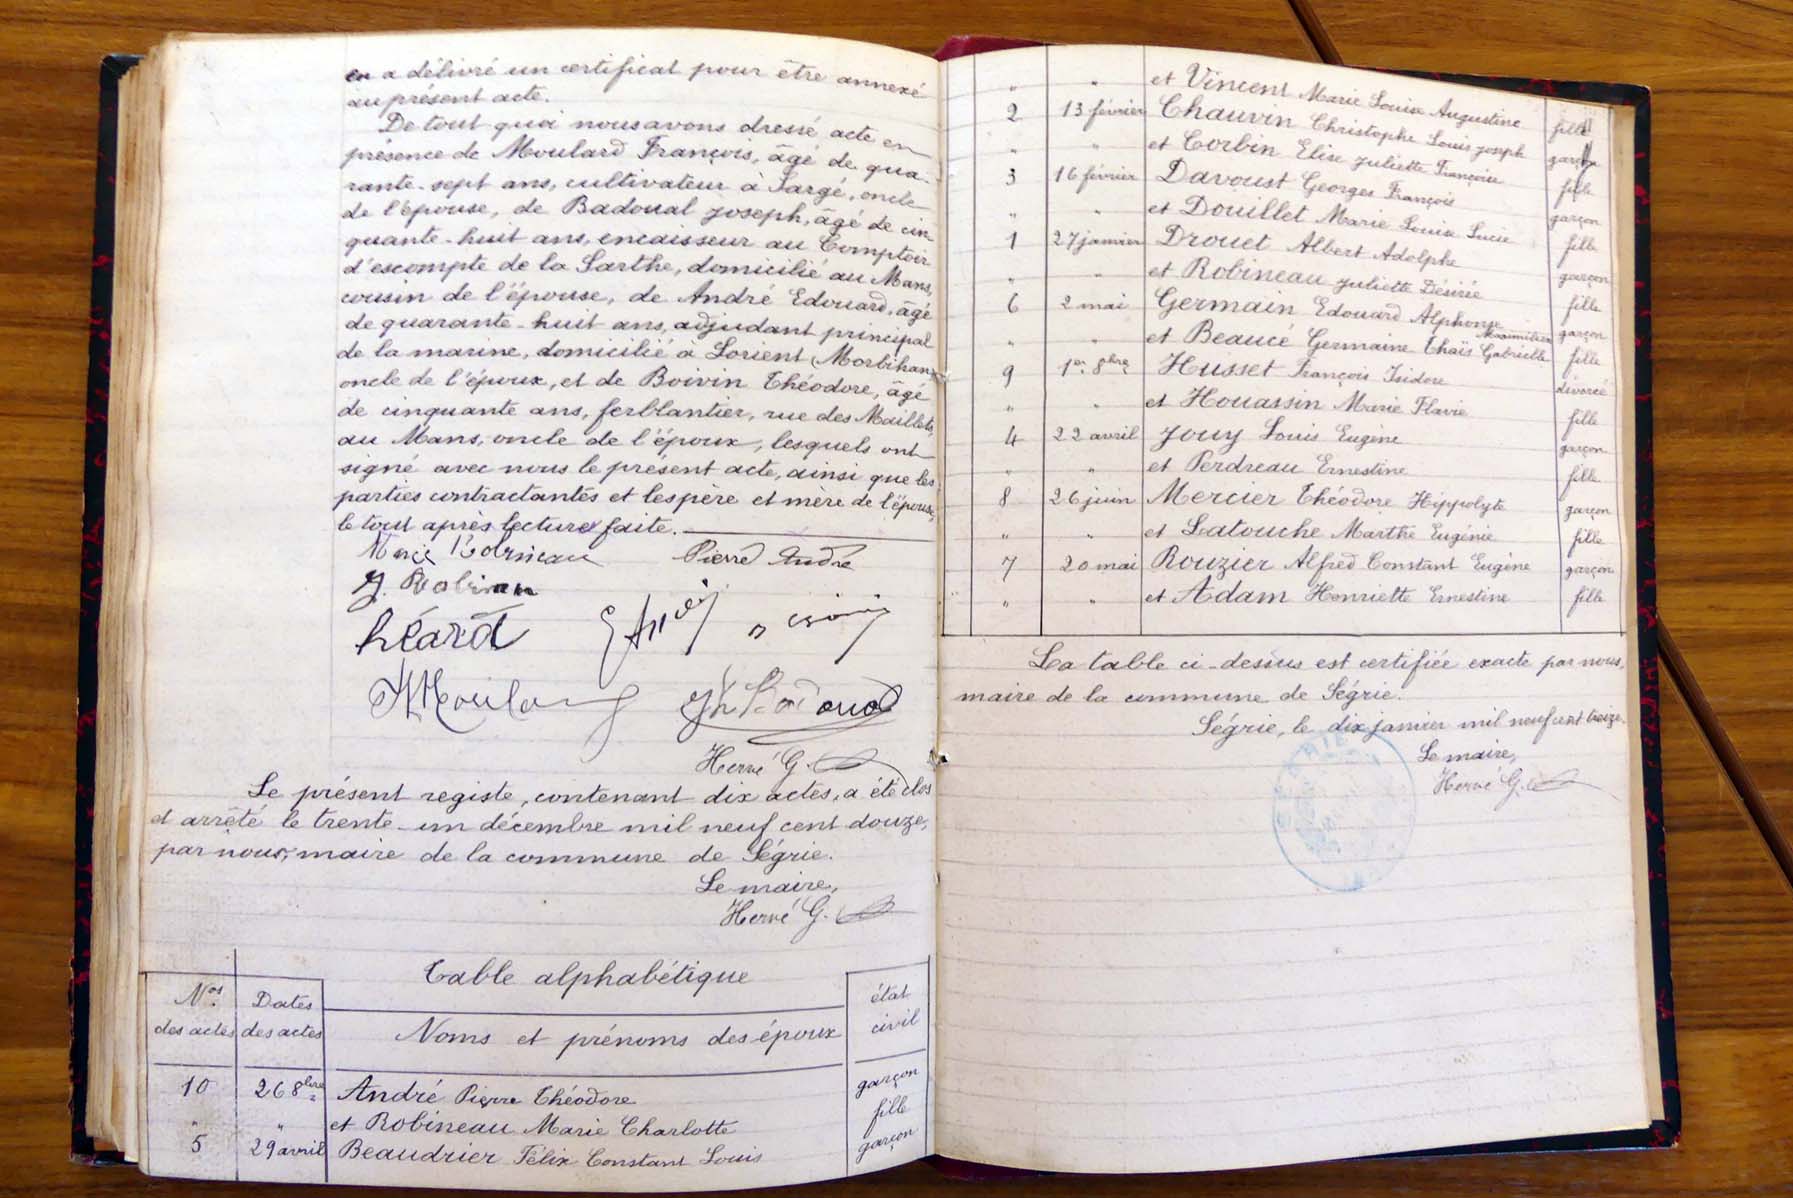 en a délivré un certificat pour être annexé
au présent acte.
De tout quoi nous avons dressé acte en
présence de Moulard François, âgé de qua-
rante-sept ans, cultivateur à Sargé, oncle
de l'épouse, de Badoual Joseph, âgé de cin
quante-huit ans, encaisseur au Comptoir
d'escompte de la Sarthe, domicilié au Mans,
cousin de l'épouse, de André Edouard, âgé
de quarante-huit ans, adjudant principal
de la marine, domicilié à Lorient (Morbihan)
oncle de l'époux, et de Boivin Théodore, âgé
de cinquante ans, ferblantier, rue des Maillets,
au Mans, oncle de l'époux, lesquels ont
signé avec nous le présent acte, ainsi que les
parties contractantes et les père et mère de l'épouse,
le tout après lecture faite.
Marie Robineau Pierre André
J. Robineau
h Eard
Moulard Jh Badoual
Hervé G.
Le présent registe, contenant dix actes, a été clos
et arrêté le trente-un décembre mil neuf cent douze,
par nous, maire de la commune de Ségrie.
Le maire,
Hervé G.
Table alphabétique
Nos des actes
Dates des actes
Noms et prénoms des époux
état civil
10 26 8bre André Pierre Théodore garçon
" " et Robineau Marie Charlotte fille
5 29 avril Beaudrier Félix Constant Louis garçon
" " et Vincent Marie Louise Augustine fille
2 13 février Chauvin Christophe Louis Joseph garçon
" " et Corbin Elise Juliette Françoise fille
3 16 février Davoust Georges François garçon
" " et Douillet Marie Louise Lucie fille
1 27 janvier Drouet Albert Adolphe garçon
" " et Robineau Juliette Désirée fille
6 2 mai Germain Edouard Alphonse Maximilien garçon
" " et Beaucé Germaine Thaïs Gabrielle fille
9 1er 8bre Husset François Isidore divorcé
" " et Houassin Marie Flavie fille
4 22 avril Jouy Louis Eugène garçon
" " et Perdreau Ernestine fille
8 26 juin Mercier Théodore Hippolyte garçon
" " et Latouche Marthe Eugénie fille
7 20 mai Rouzier Alfred Constant Eugène garçon
" " et Adam Henriette Ernestine fille
La table ci-dessus est certifiée exacte par nous,
maire de la commune de Ségrie.
Ségrie, le dix janvier mil neuf cent treize.
Le maire,
Hervé G.